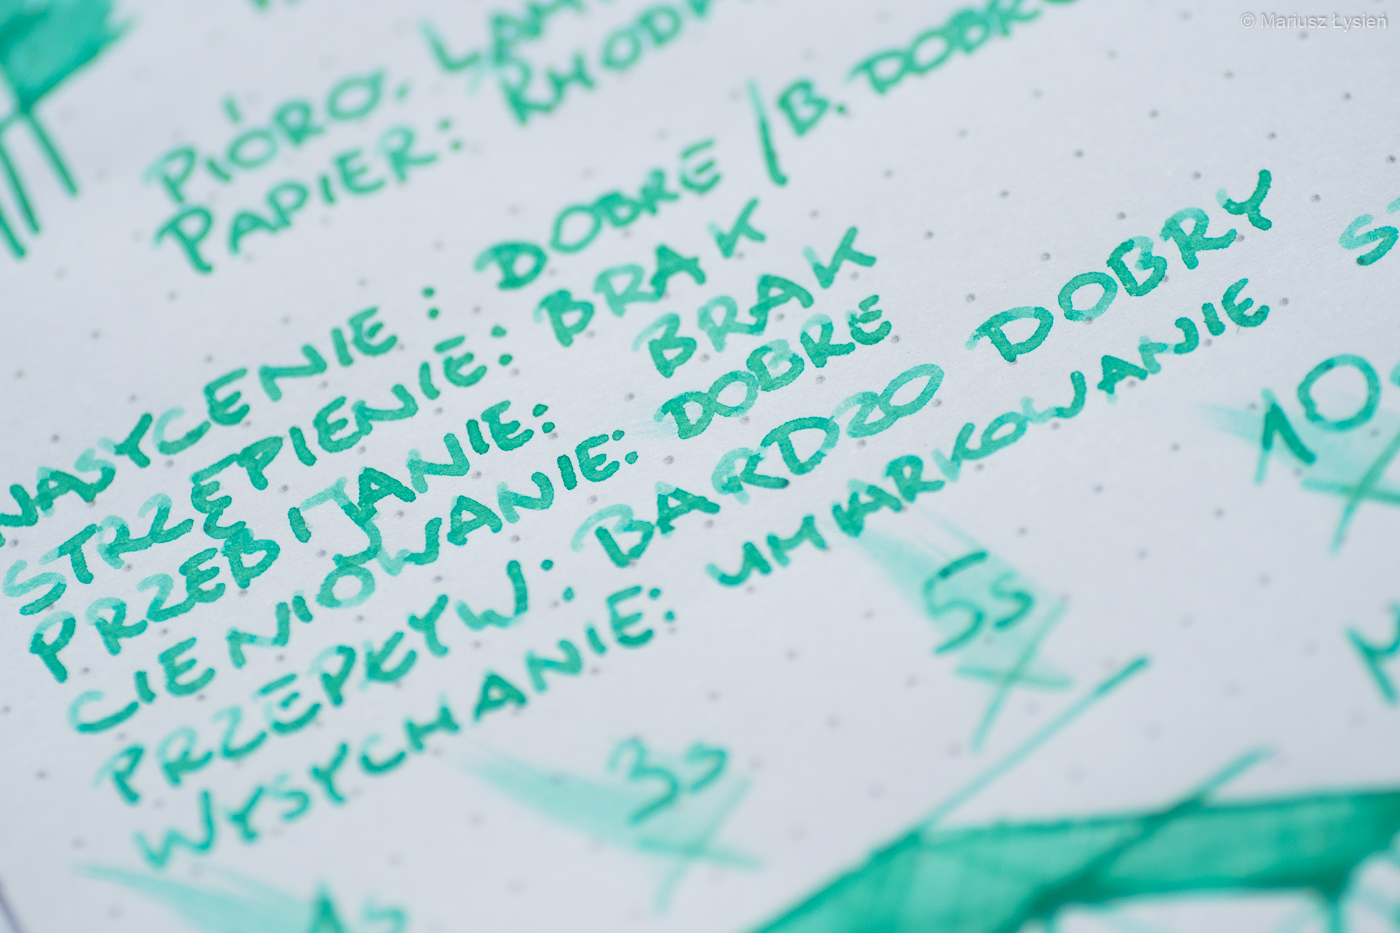 © Mariusz Łysień
PIÓRO: LAM
PAPIER: RHOD
NASYCENIE: DOBRE / B. DOBRE
STRZĘPIENIE: BRAK
PRZEBIJANIE: BRAK
CIENIOWANIE: DOBRE
PRZEPŁYW: BARDZO DOBRY
WYSYCHANIE: UMIARKOWANIE
1s
3s
5s
10s